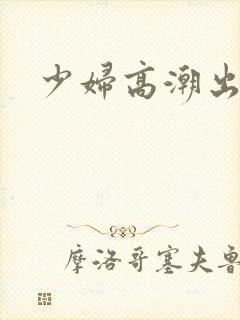 少婦高潮出
摩洛哥塞夫魯